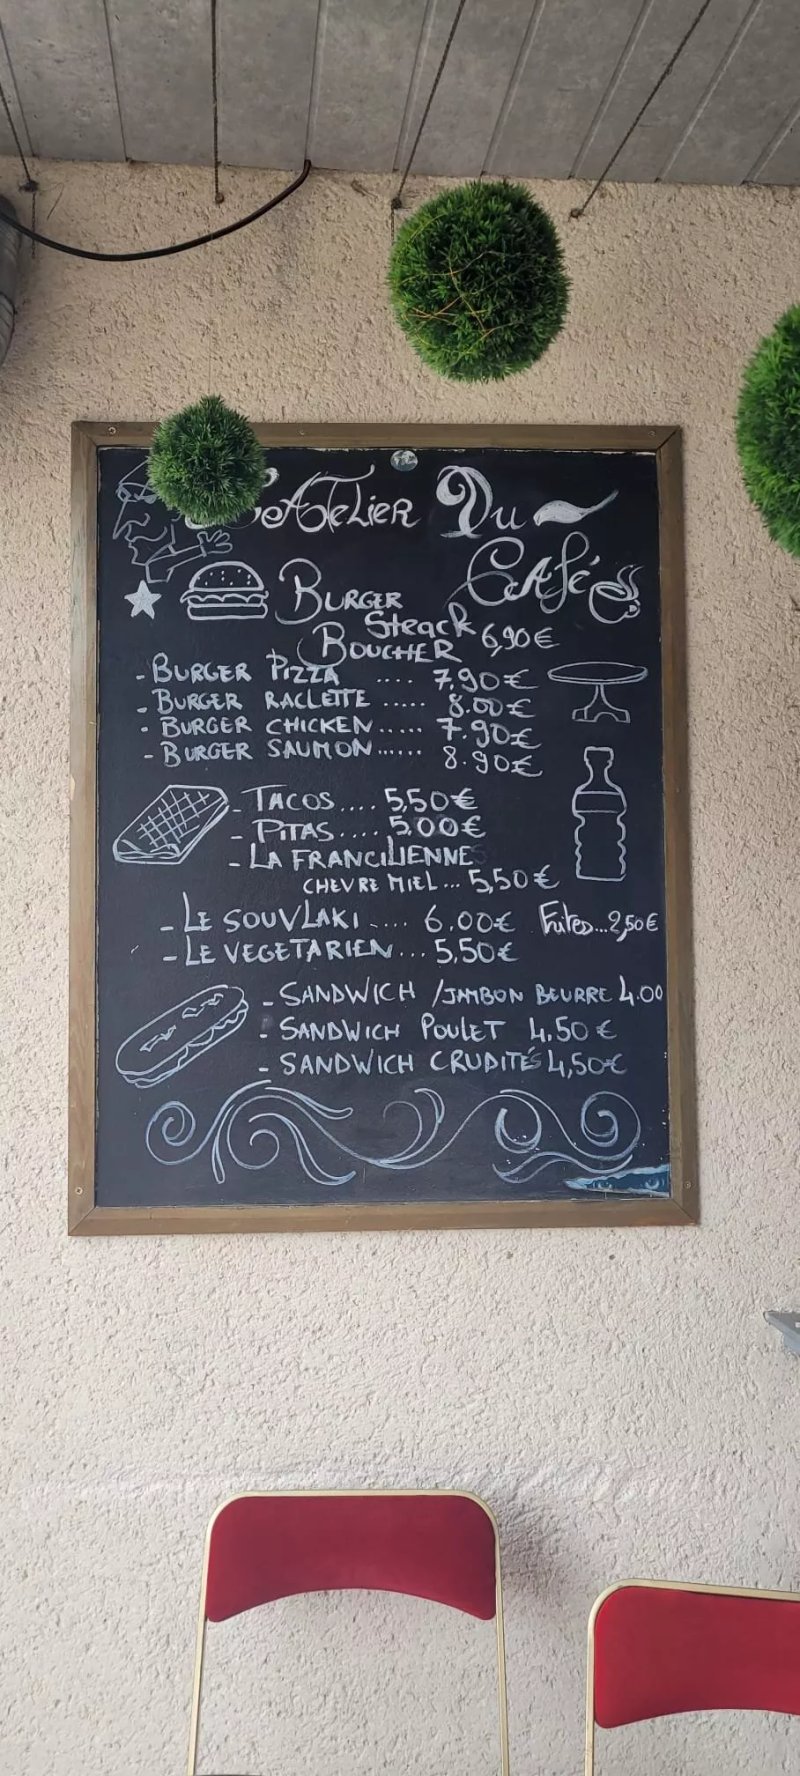 L'ATELIER DU
CAFÉ
BURGER
Steack
BOUCHER 6,90€
- BURGER PIZZA .... 7.90€
- BURGER RACLETTE ..... 8.00€
- BURGER CHICKEN ..... 7.90€
- BURGER SAUMON ...... 8.90€
- TACOS .... 5,50€
- PITAS .... 5.00€
- LA FRANCILIENNE
CHEVRE MIEL ... 5,50€
- LE SOUVLAKI .... 6.00€ Frites...2,50€
- LE VEGETARIEN ... 5,50€
- SANDWICH /JAMBON BEURRE 4.00
- SANDWICH POULET 4.50€
- SANDWICH CRUDITÉS 4,50€